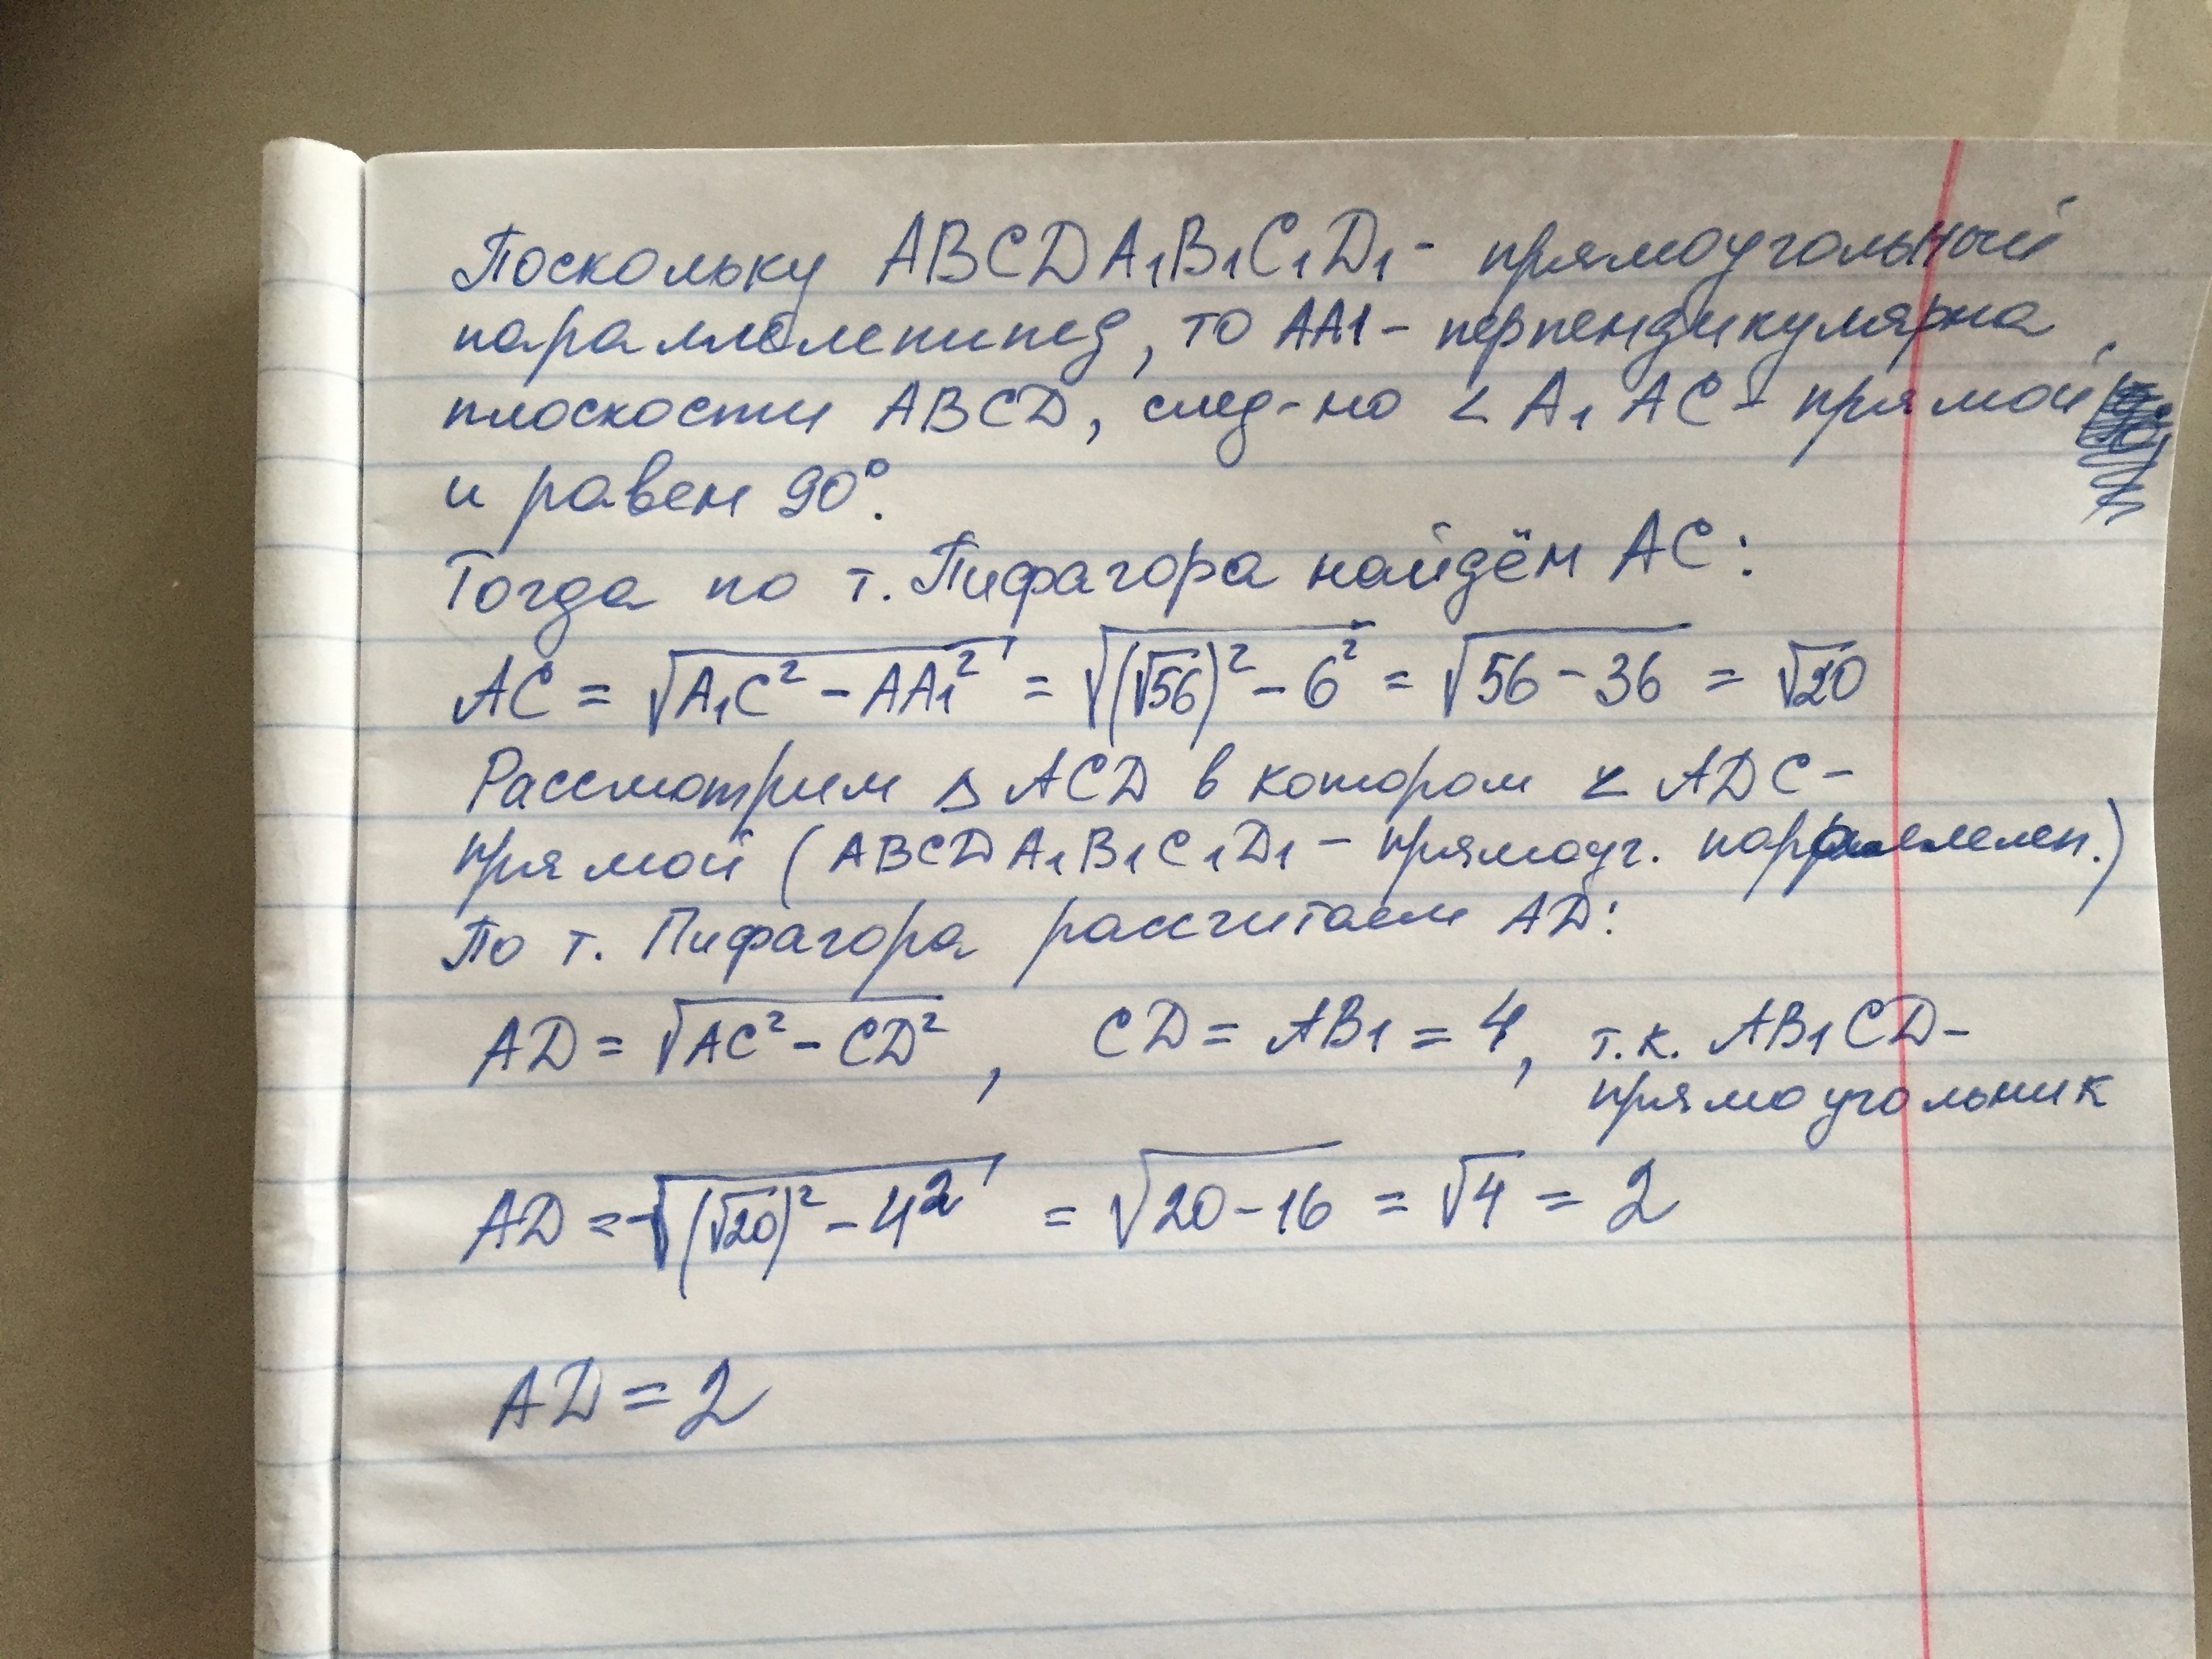 Поскольку ABCDA₁B₁C₁D₁ - прямоугольный
параллелепипед, то AA1 - перпендикулярна
плоскости ABCD, след-но ∠A₁AC - прямой
и равен 90°.
Тогда по т. Пифагора найдём AC:
AC = √(A₁C² - AA₁²) = √((√56)² - 6²) = √(56 - 36) = √20
Рассмотрим △ACD в котором ∠ADC -
прямой (ABCDA₁B₁C₁D₁ - прямоуг. параллелеп.)
По т. Пифагора рассчитаем AD:
AD = √(AC² - CD²), CD = AB₁ = 4, т.к. AB₁CD -
прямоугольник
AD = √((√20)² - 4²) = √(20 - 16) = √4 = 2
AD = 2